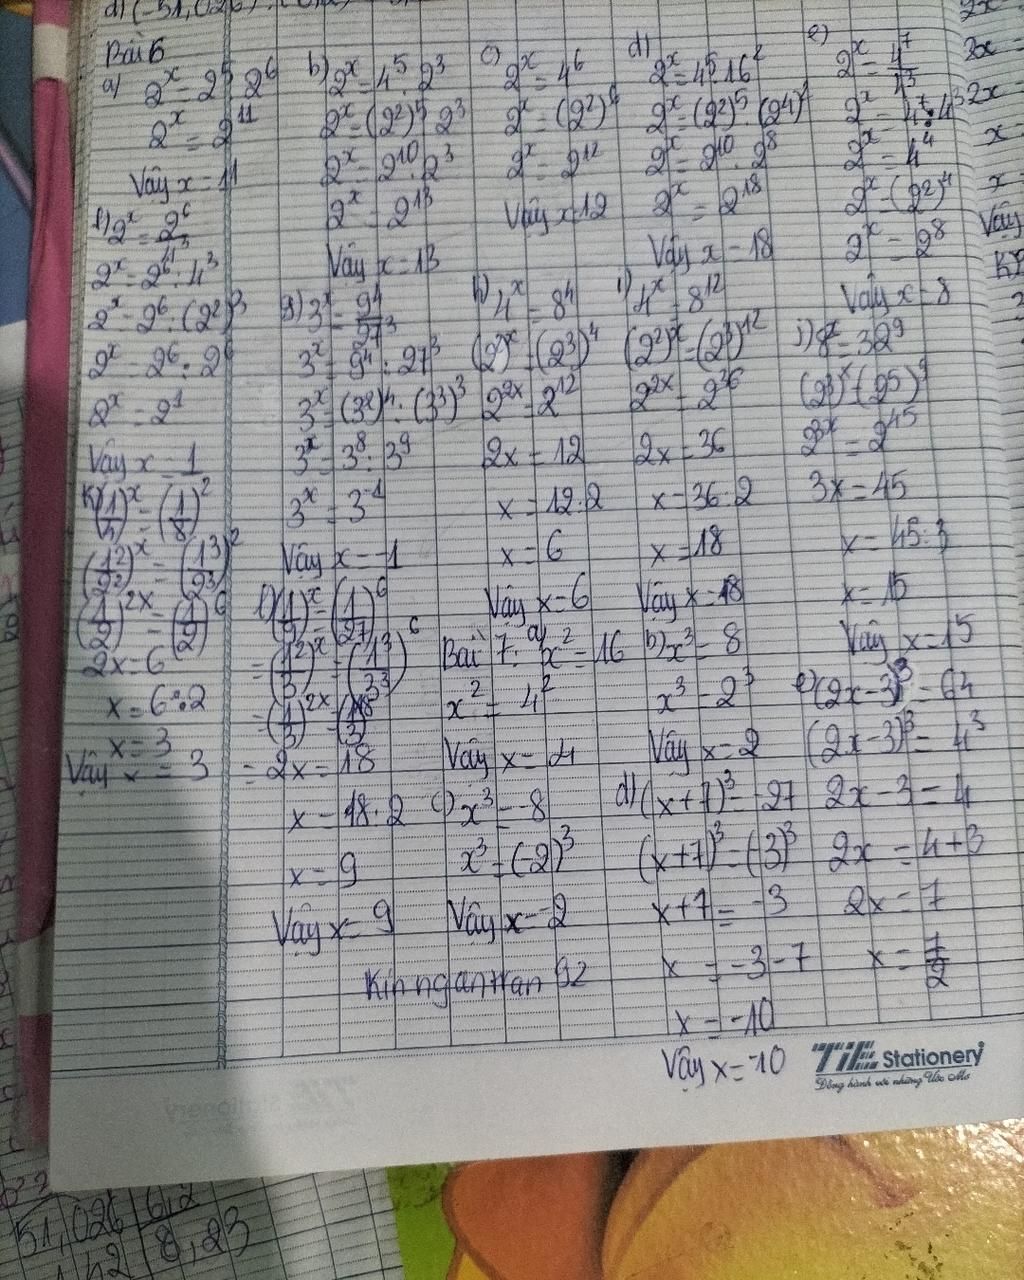 Bài 6
a) 2^x = 2^5 . 2^6
2^x = 2^11
Vậy x = 11
b) 2^x = 4^5 . 2^3
2^x = (2^2)^5 . 2^3
2^x = 2^10 . 2^3
2^x = 2^13
Vậy x = 13
c) 2^x = 4^6
2^x = (2^2)^6
2^x = 2^12
Vậy x = 12
d) 2^x = 4^5 . 16^2
2^x = (2^2)^5 . (2^4)^2
2^x = 2^10 . 2^8
2^x = 2^18
Vậy x = 18
e) 2^x = 4^7/4^3
2^x = 4^7 : 4^3
2^x = 4^4
2^x = (2^2)^4
2^x = 2^8
Vậy x = 8
f) 2^x = 2^6/4^3
2^x = 2^6 : 4^3
2^x = 2^6 : (2^2)^3
2^x = 2^6 : 2^6
2^x = 2^1
Vậy x = 1
g) 3^x = 9^4/27^3
3^x = 9^4 : 27^3
3^x = (3^2)^4 : (3^3)^3
3^x = 3^8 : 3^9
3^x = 3^-1
Vậy x = -1
h) 4^x = 8^4
(2^2)^x = (2^3)^4
2^2x = 2^12
2x = 12
x = 12:2
x = 6
Vậy x = 6
i) 4^x = 8^12
(2^2)^x = (2^3)^12
2^2x = 2^36
2x = 36
x = 36:2
x = 18
Vậy x = 18
j) 8^x = 32^9
(2^3)^x = (2^5)^9
2^3x = 2^45
3x = 45
x = 45:3
x = 15
Vậy x = 15
k) (1/4)^x = (1/8)^2
(1^2/2^2)^x = (1^3/2^3)^2
(1/2)^2x = (1/2)^6
2x = 6
x = 6:2
x = 3
Vậy x = 3
l) (1/9)^x = (1/27)^6
= (1^2/3)^x = (1^3/3^3)^6
= (1/3)^2x = (1/3)^18
= 2x = 18
x = 18:2
x = 9
Vậy x = 9
Bài 7: a) x^2 = 16
x^2 = 4^2
Vậy x = 4
b) x^3 = 8
x^3 = 2^3
Vậy x = 2
c) x^3 = -8
x^3 = (-2)^3
Vậy x = -2
d) (x+7)^3 = -27
(x+7)^3 = (-3)^3
x+7 = -3
x = -3-7
x = -10
Vậy x = -10
e) (2x-3)^3 = 64
(2x-3)^3 = 4^3
2x-3 = 4
2x = 4+3
2x = 7
x = 7/2
TiE Stationery
Đồng hành với những Ước Mơ
51,026 6,2
8,23